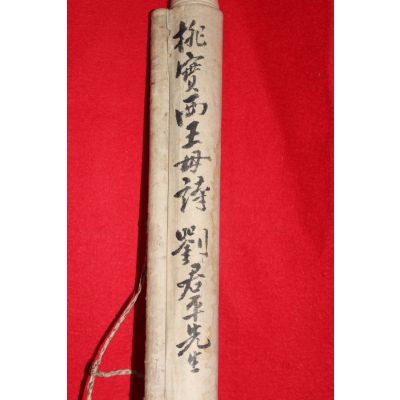 桃實西王母詩 劉君平先生